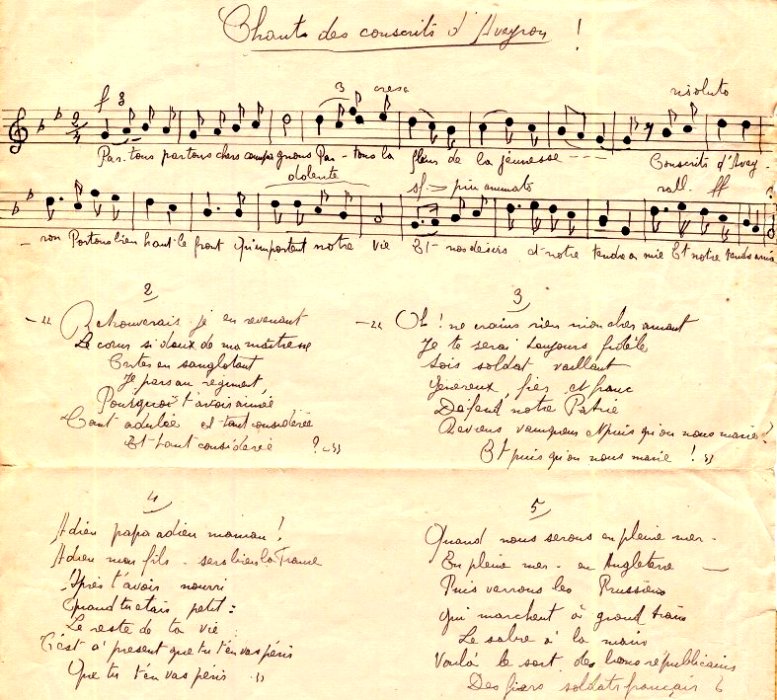 Chants des conscrits d'Aveyron !
f 3 3 cresc risoluto
Par-tons partons chers compagnons Par-tons la fleur de la jeunesse ---- Conscrits d'Avey-
dolente sf => piu animato rall. ff
- ron Portons bien haut le front Qu'importent notre vie Et - nos desirs et notre tendre amie Et notre tendre amie
2
-" Retrouverais-je en revenant
Le cœur si doux de ma maîtresse
Certes en sanglotant
Je pars au régiment,
Pourquoi t'avoir aimée
Tant adulée et tant considérée
Et tant considérée ? -"
3
-" Oh ! ne crains rien mon cher amant
Je te serai toujours fidèle
Sois soldat vaillant
Généreux, fier et franc
Défend notre Patrie
Reviens vainqueur et puis qu'on nous marie !
Et puis qu'on nous marie ! "
4
Adieu papa adieu maman !
Adieu mon fils - sers bien la France
Après t'avoir nourri
Quand tu étais petit :
Le reste de ta vie
C'est à présent que tu t'en vas péris
Que tu t'en vas péris "
5
Quand nous serons en pleine mer -
En pleine mer - en Angleterre -
Puis verrons les Prussiens
Qui marchent à grand train
Le sabre à la main
Voilà le sort des bons républicains
Des fiers soldats français !